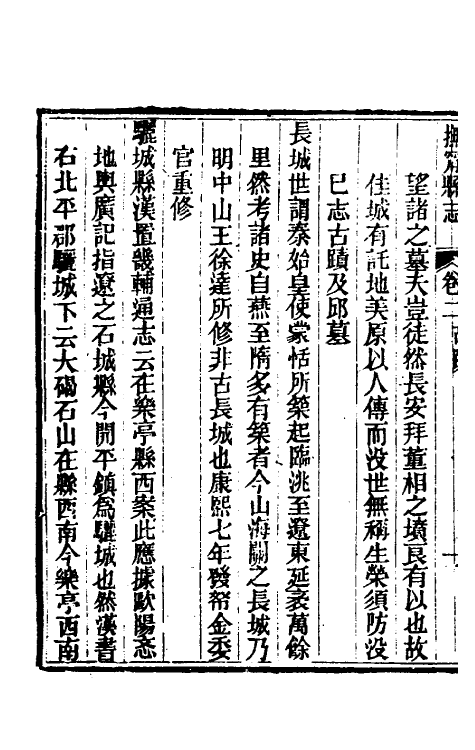 撫寧縣志 卷二 古蹟
望諸之墓夫豈徒然長安拜董相之墳良有以也故
佳城有託地美原以人傳而没世無稱生榮須防没
巳志古蹟及邱墓
長城世謂秦始皇使蒙恬所築起臨洮至遼東延袤萬餘
里然考諸史自燕至隋多有築者今山海關之長城乃
明中山王徐達所修非古長城也康熙七年發帑金委
官重修
驪城縣漢置畿輔通志云在樂亭縣西案此應據歐陽忞
地輿廣記指遼之石城縣今開平鎮爲驪城也然漢書
右北平郡驪城下云大碣石山在縣西南今樂亭西南